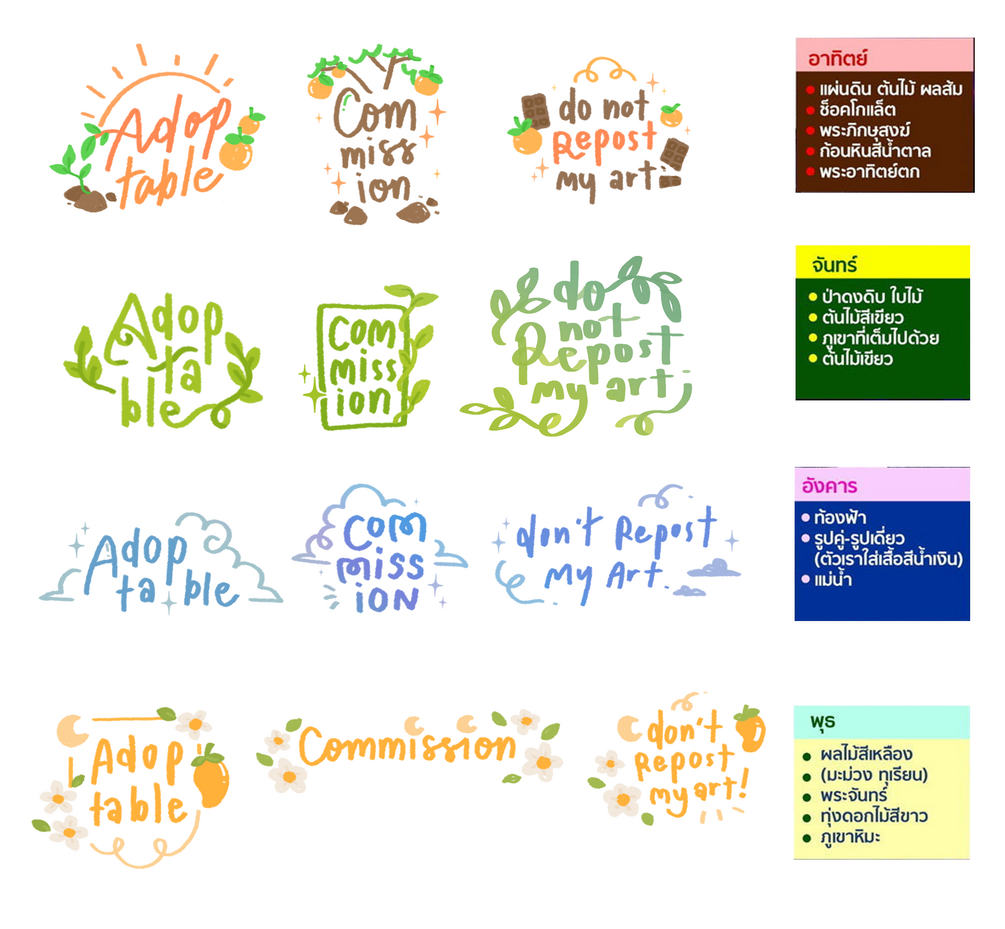 Adop
table
Com
miss
ion
do not
Repost
my art
อาทิตย์
แผ่นดิน ต้นไม้ ผลส้ม
ช็อคโกแล็ต
พระภิกษุสงฆ์
ก้อนหินสีน้ำตาล
พระอาทิตย์ตก
Adop
ta
ble
Com
miss
ion
do
not
Repost
my art
จันทร์
ป่าดงดิบ ใบไม้
ต้นไม้สีเขียว
ภูเขาที่เต็มไปด้วย
ต้นไม้เขียว
Adop
table
Com
miss
ion
don't Repost
My Art.
อังคาร
ท้องฟ้า
รูปคู่-รูปเดี่ยว
(ตัวเราใส่เสื้อสีน้ำเงิน)
แม่น้ำ
Adop
table
Commission
don't
Repost
my art!
พุธ
ผลไม้สีเหลือง
(มะม่วง ทุเรียน)
พระจันทร์
ทุ่งดอกไม้สีขาว
ภูเขาหิมะ